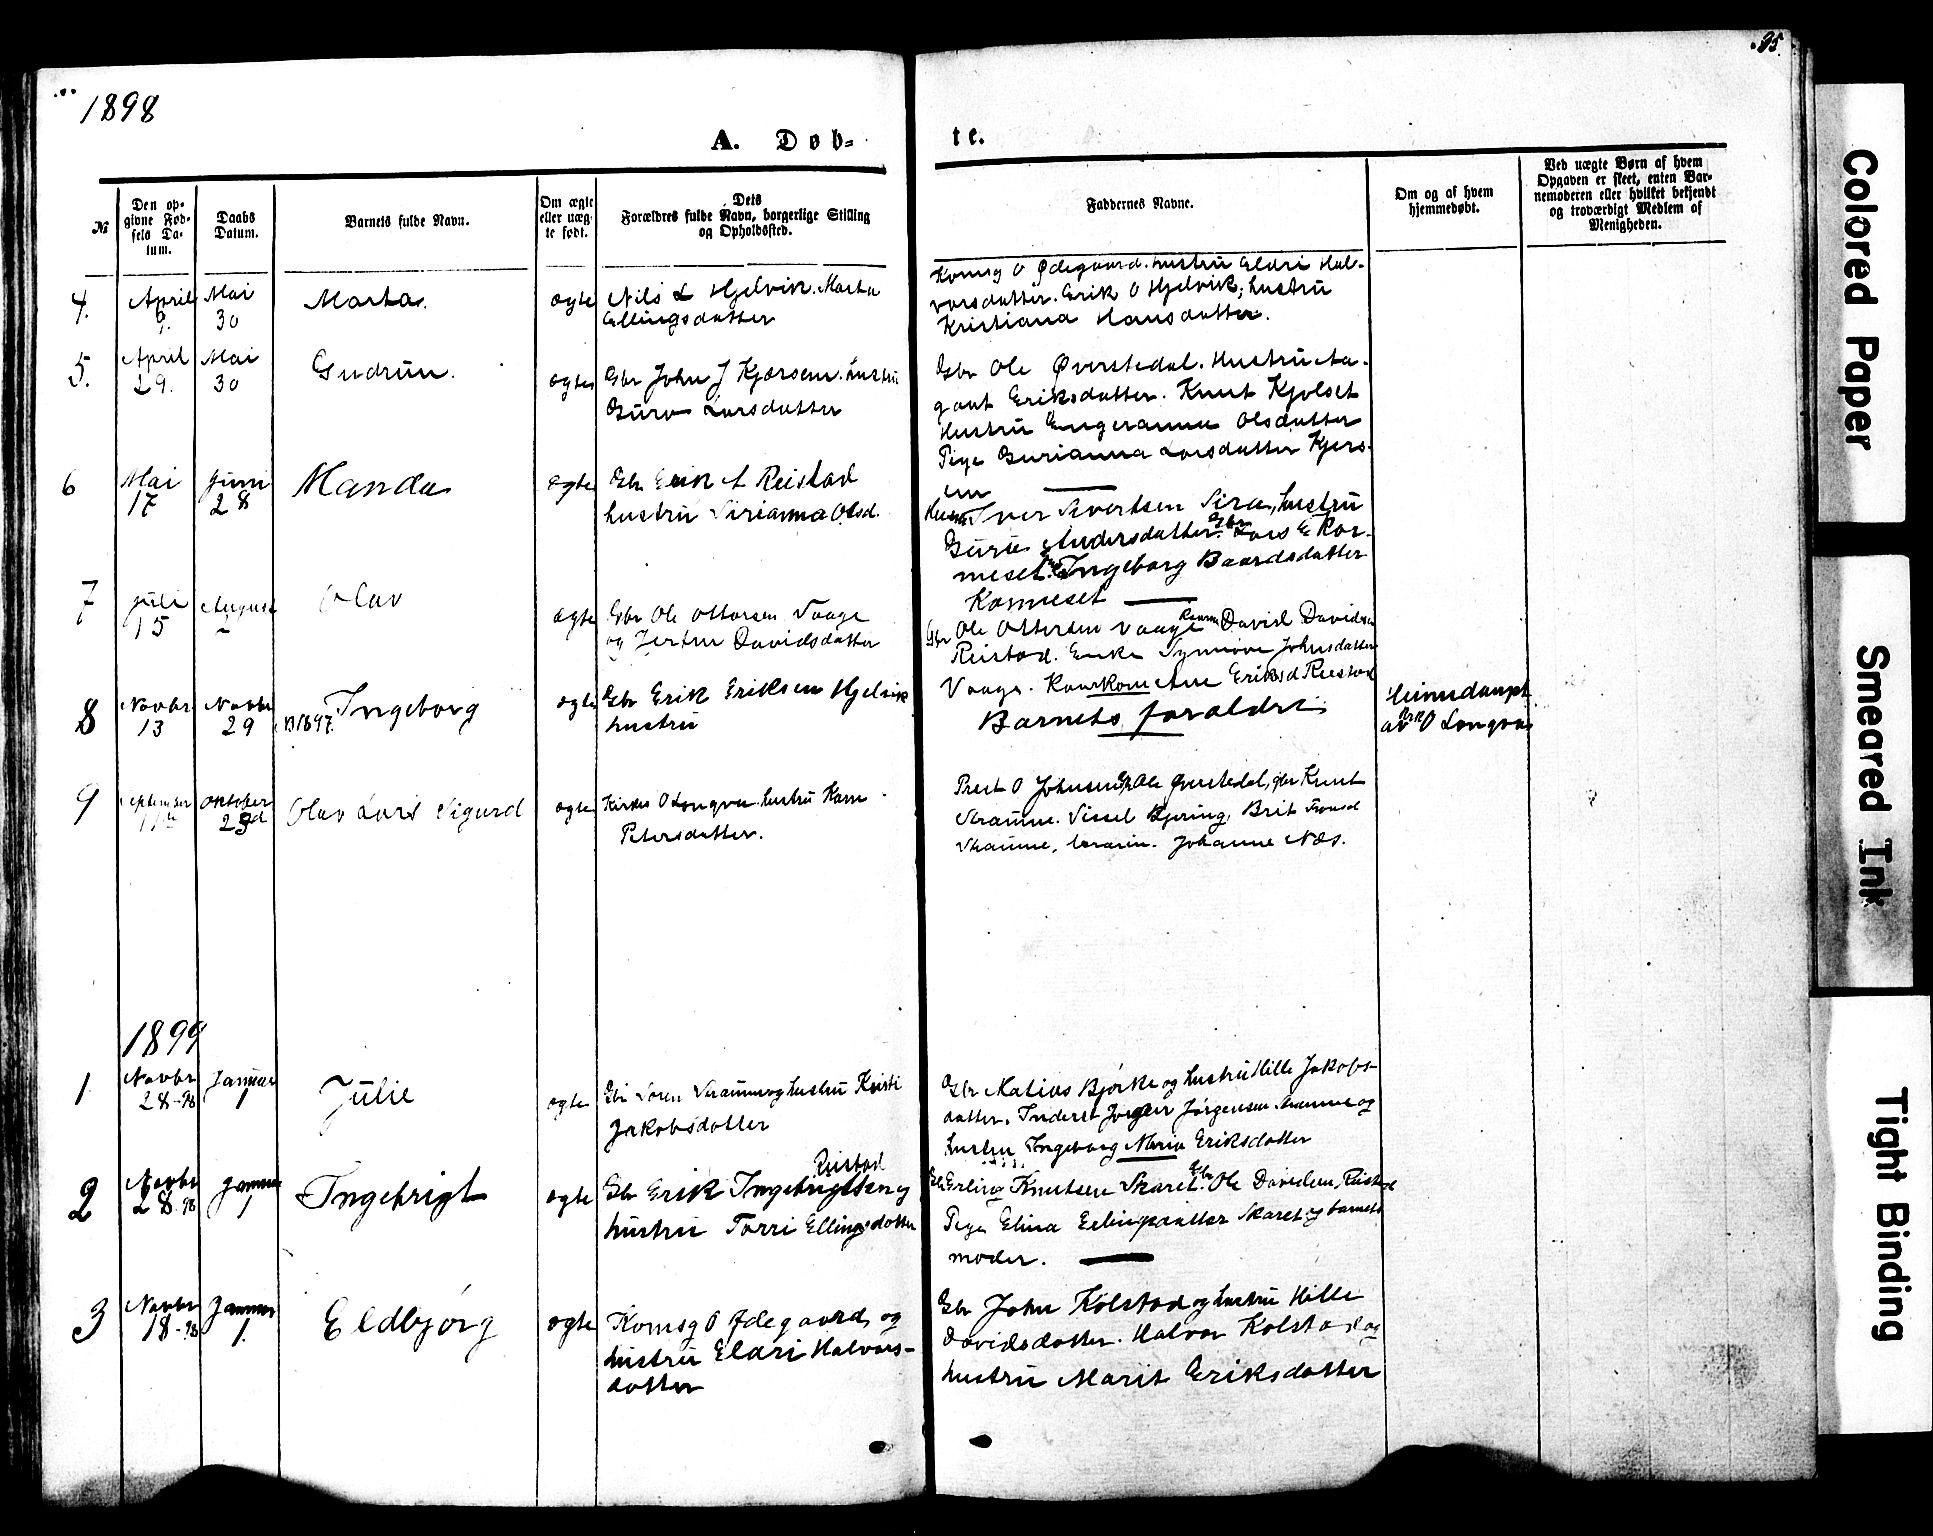 1898
35.
A. Døb-
te.
No
Den op-
givne Fød-
sels Da-
tum.
Daabs
Datum.
Barnets fulde Navn.
Om ægte
eller uæg-
te født.
Dets
Forældres fulde Navn, borgerlige Stilling
og Opholdssted.
Faddernes Navne.
Om og af hvem
hjemmedøbt.
Ved uægte Børn af hvem
Opgaven er skeet, enten Bar-
nemoderen eller hvilket bekjendt
og troværdigt Medlem af
Menigheden.
4.
April
6.
Mai
30
Marta.
ægte
Nils L Hjelvik. Marta
Ellingsdatter
O Ødegaard. hustru Eldri Hal-
vorsdatter. Erik O Hjelvik, hustru
Kristiana Hansdatter.
5.
April
29.
Mai
30
Gudrun.
ægte
Gbr John J Kjørsem. hustru
Guro Larsdatter
Gbr Ole Øverstedal. Hustru Aa-
gaat Eriksdatter. Knut Kjølset
Hustru Olsdatter
Pige Gurianna Larsdatter Kjørs-
em
6
Mai
17
Juni
28
Manda
ægte
Gbr Erik A Reistad
hustru Sirianna Olsd.
Iver Sivertsen Sira, hustru
Guru Andersdatter. Gbr Lars E Kor-
meset. Ingeborg Baardsdatter
Kormeset
7
Juli
15
August
2
Olav
ægte
Gbr Ole Ottersen Vaage
og Jertru Davidsdatter
Gbr Ole Ottersen Vaage David Davidsen
Reistad. Enke Synnøve Johnsdatter
Vaage. Ane Eriksd Reistad
8
Novbr
13
Novbr
29
1897.
Ingeborg
ægte
Gbr Erik Eriksen Hjelvik
hustru
Barnets foraldri
Heimedaupt
av O Longva
9
September
11
Oktober
23
Olav Lars Sigurd
ægte
O Longva. hustru
Petersdatter.
Prest O Johnsen, Ole Øverstedal, gbr Knut
Skaume. Sissel Bjering, Brit
Skaume, lærarin. Johanne Næs.
1899
1
Novbr
28-98
Januar
1
Julie
ægte
Gbr Søren Skaume og hustru Kristi
Jakobsdatter
Gbr Matias Bjørke og hustru Hille Jakobs-
datter. Jørgen Jørgensen Skaume og
hustru Ingeborg Maria Eriksdatter
2
Novbr
28-98
Januar
1
Ingebrigt
ægte
Reistad
Gbr Erik Ingebrigtsen og
hustru Torri Ellingsdatter
Gbr Erling Knutsen Skaret. Gbr Ole Davidsen, Reistad
Pige Elina Erlingsdatter Skaret og barnets
moder.
3
Novbr
18-98
Januar
1.
Eldbjørg
ægte
O Ødegaard, og
hustru Eldri Halvors-
datter
Gbr John Kolstad og hustru Hille
Davidsdatter. Halvor Kolstad og
hustru Marit Eriksdatter
Colored Paper
Smeared Ink
Tight Binding